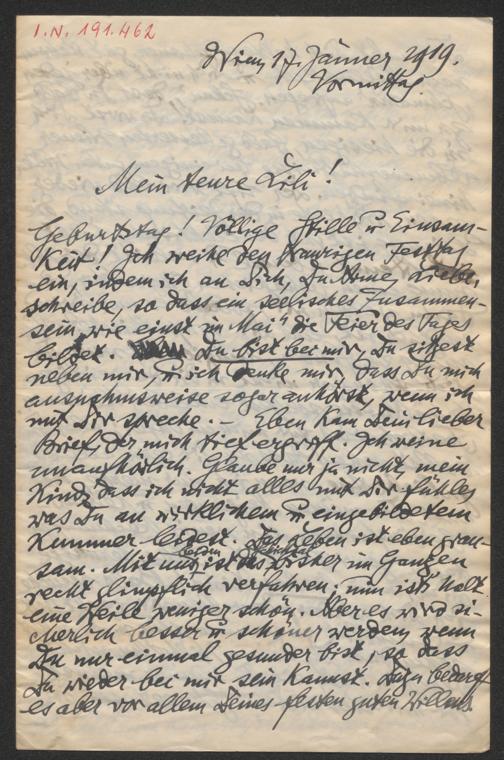 I.N. 191.462
Wien, 17. Jänner 1919.
Vormittag.
Mein teure Lili!
Geburtstag! Völlige Stille u Einsam-
keit! Ich weihe den traurigen Festtag
ein, indem ich an Dich, Du Arme, Liebe,
schreibe, so dass ein seelisches Zusammen-
sein, wie einst im Mai" die Feier des Tages
bildet. Du bist bei mir, Du sitzest
neben mir, u ich denke mir, dass Du mich
ausnahmsweise sogar anhörst, wenn ich
mit Dir spreche. – Eben kam Dein lieber
Brief, der mich tief ergriff. Ich weine
unaufhörlich. Glaube nur ja nicht, mein
Kind, dass ich nicht alles mit Dir fühle,
was Du an wirklichem u eingebildetem
Kummer leidest. Das Leben ist eben grau-
sam. Mit uns beiden ist es bisher im Ganzen
recht glimpflich verfahren; nun ists halt
eine Weile weniger schön. Aber es wird si-
cherlich besser u schöner werden, wenn
Du nur einmal gesunder bist, so dass
Du wieder bei mir sein kannst. Dazu bedarf
es aber vor allem Deines festen guten Willens